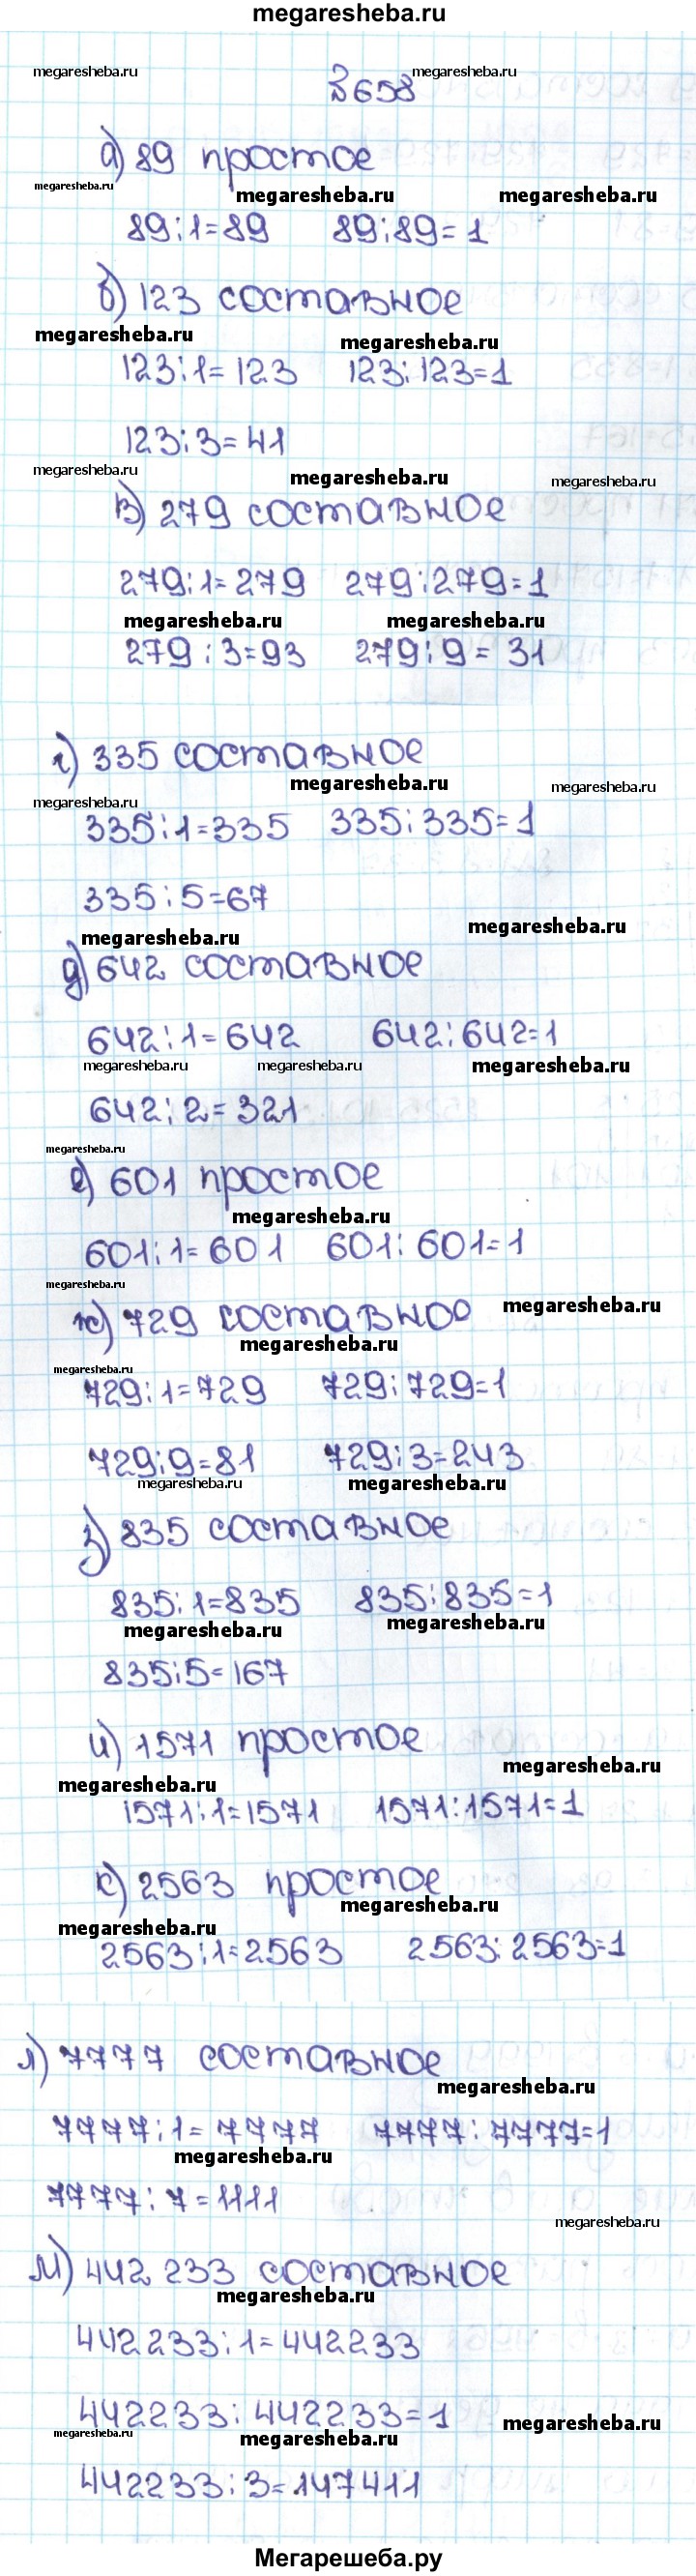 megaresheba.ru
megaresheba.ru megaresheba.ru
№658
а) 89 простое
megaresheba.ru
megaresheba.ru megaresheba.ru
89:1=89 89:89=1
б) 123 составное
megaresheba.ru megaresheba.ru
123:1=123 123:123=1
123:3=41
megaresheba.ru megaresheba.ru megaresheba.ru
в) 279 составное
279:1=279 279:279=1
megaresheba.ru megaresheba.ru
279:3=93 279:9=31
г) 335 составное
megaresheba.ru megaresheba.ru megaresheba.ru
335:1=335 335:335=1
335:5=67
megaresheba.ru megaresheba.ru
д) 642 составное
642:1=642 642:642=1
megaresheba.ru megaresheba.ru megaresheba.ru
642:2=321
megaresheba.ru
е) 601 простое
megaresheba.ru
601:1=601 601:601=1
megaresheba.ru
ж) 729 составное megaresheba.ru
megaresheba.ru
megaresheba.ru
729:1=729 729:729=1
729:9=81 729:3=243
megaresheba.ru megaresheba.ru
з) 835 составное
835:1=835 835:835=1
megaresheba.ru megaresheba.ru
835:5=167
и) 1571 простое
megaresheba.ru megaresheba.ru
1571:1=1571 1571:1571=1
к) 2563 простое
megaresheba.ru megaresheba.ru
2563:1=2563 2563:2563=1
л) 7777 составное
megaresheba.ru
7777:1=7777 7777:7777=1
megaresheba.ru
7777:7=1111
megaresheba.ru
м) 442 233 составное
megaresheba.ru
442233:1=442233
442233:442233=1
megaresheba.ru megaresheba.ru megaresheba.ru
442233:3=147411
Мегарешеба.ру